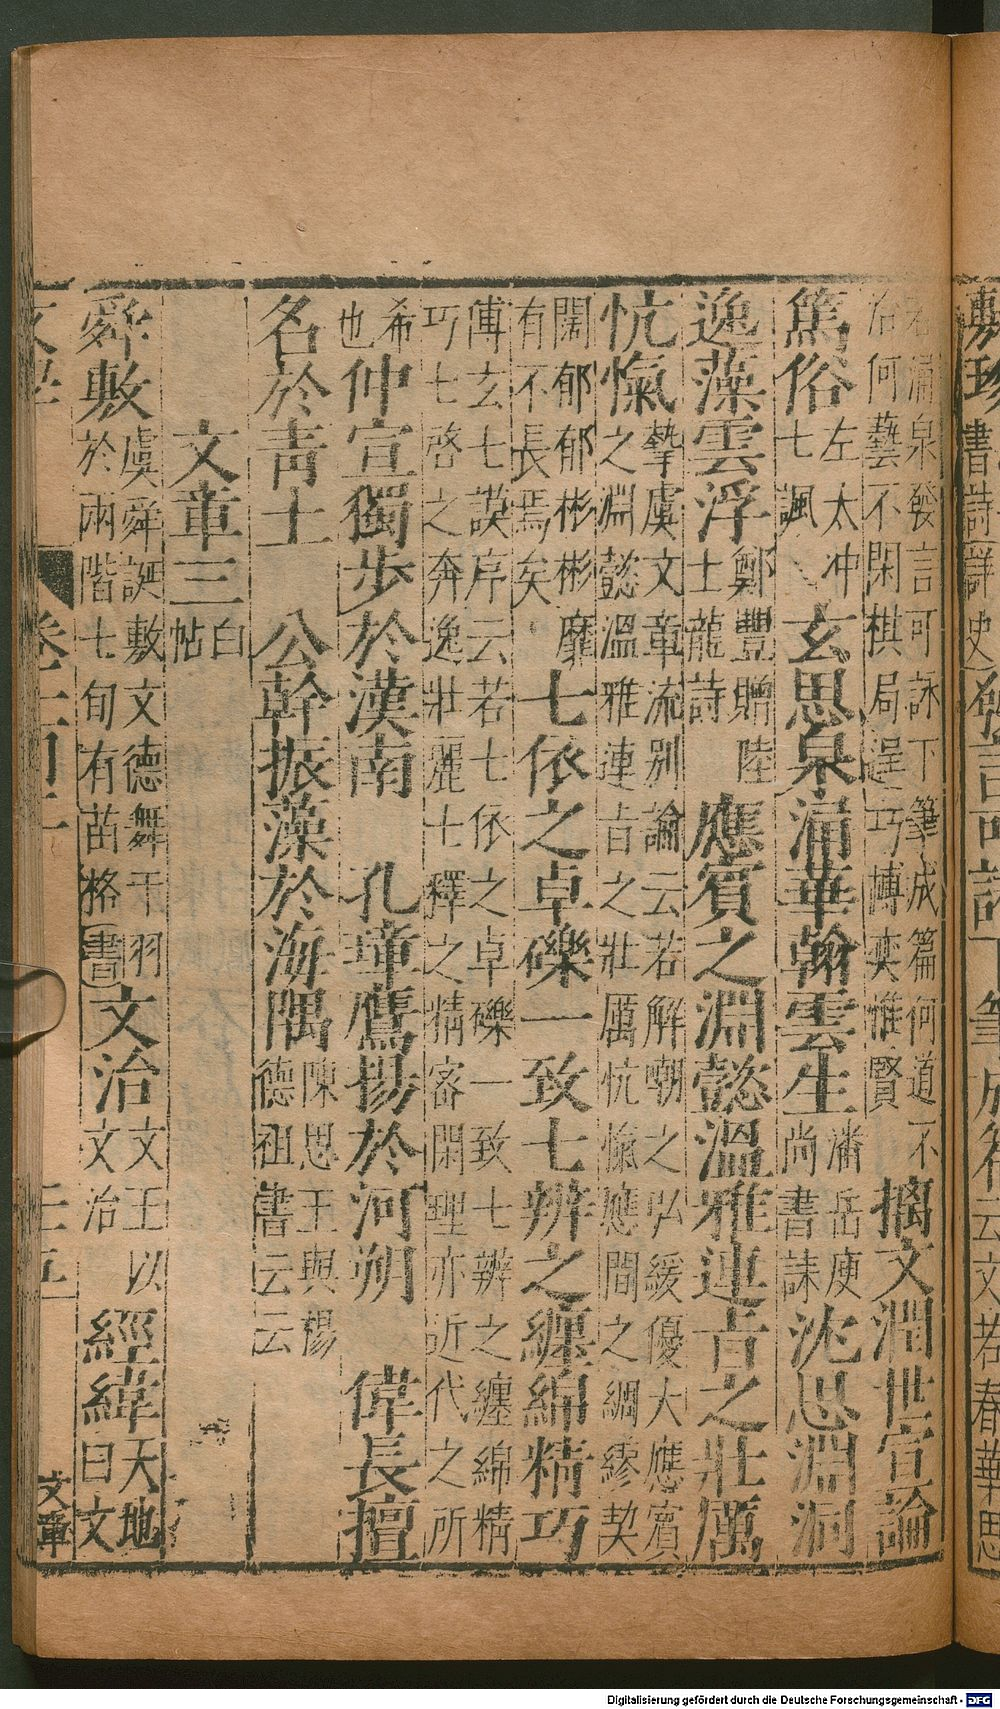 敷 書 發言可詠下筆成 云文若春華思
若湧泉發言可詠下筆成篇何道不
洽何藝不閑棋局逞巧博奕惟賢
摛文潤世宣論
篤俗
左太冲
七諷
玄思泉涌華翰雲生
潘岳庾
尚書誄
沈思淵洞
逸藻雲浮
鄭豐贈陸
士龍詩
應賓之淵懿溫雅連㫖之壯厲
忼愾
摯虞文章流别論云若解嘲之弘緩優大應賓
之淵懿溫雅連㫖之壯厲忼愾應間之綢繆契
闊郁郁彬彬靡
有不長焉矣
七依之卓礫一致七辨之纏綿精巧
傅玄七謨序云若七依之卓礫一致七辨之纏綿精
巧七啓之奔逸壯麗七釋之精密閑理亦近代之所
希
也
仲宣獨步於漢南 孔章鷹揚於河朔 偉長擅
名於青土 公幹振藻於海隅
陳思王與楊
德祖書云云
文章三
白
帖
舜敷
虞舜誕敷文德舞干羽
於兩階七旬有苗格
書
文治
文王以
文治
經緯
天地
曰文
文章
Digitalisierung gefördert durch die Deutsche Forschungsgemeinschaft - DFG